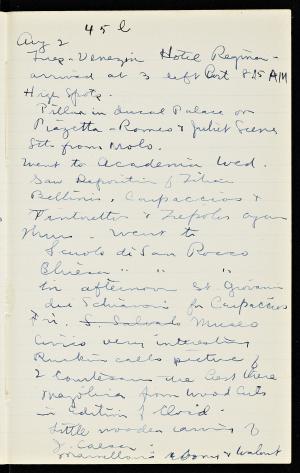 45 l
Aug 2
Venezia Hotel Regina -
arrived at 3 left 8:15 AM
High Spots.
Pillar in ducal Palace on
Piazetta - Romeo & Juliet Scene
from Molo.
Went to Academia Wed.
Saw Deposition of Titian
Bellinis, Carpaccios &
Tintorettos & Tiepolos again
Thurs. Went to
Scuola di San Rocco
Chiesa " " "
in afternoon St. Giovanni
Schiavoni for Carpaccios
Fri. Museo
Civico very interesting
Ruskin calls picture of
2 Courtesans the best there
from wood cuts
in Edition of Ovid.
Little wooden carving of
J. Caesar
marvellous & Walnut